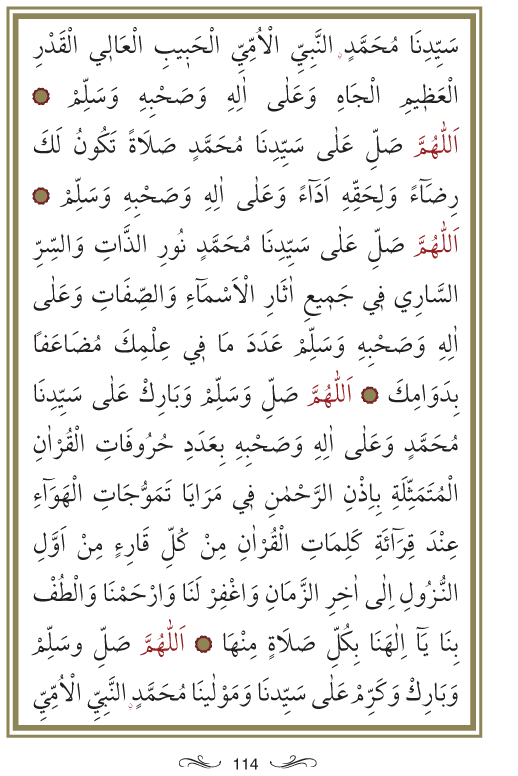 سَيِّدِنَا مُحَمَّدٍ النَّبِيِّ الْاُمِّيِّ الْحَبٖيبِ الْعَالِي الْقَدْرِ
الْعَظٖيمِ الْجَاهِ وَعَلٰى اٰلِهٖ وَصَحْبِهٖ وَسَلِّمْ
اَللّٰهُمَّ صَلِّ عَلٰى سَيِّدِنَا مُحَمَّدٍ صَلَاةً تَكُونُ لَكَ
رِضَٓاءً وَلِحَقِّهٖ اَدَٓاءً وَعَلٰى اٰلِهٖ وَصَحْبِهٖ وَسَلِّمْ
اَللّٰهُمَّ صَلِّ عَلٰى سَيِّدِنَا مُحَمَّدٍ نُورِ الذَّاتِ وَالسِّرِّ
السَّارِي فٖي جَمٖيعِ اٰثَارِ الْاَسْمَٓاءِ وَالصِّفَاتِ وَعَلٰى
اٰلِهٖ وَصَحْبِهٖ وَسَلِّمْ عَدَدَ مَا فٖي عِلْمِكَ مُضَاعَفًا
بِدَوَامِكَ اَللّٰهُمَّ صَلِّ وَسَلِّمْ وَبَارِكْ عَلٰى سَيِّدِنَا
مُحَمَّدٍ وَعَلٰى اٰلِهٖ وَصَحْبِهٖ بِعَدَدِ حُرُوفَاتِ الْقُرْاٰنِ
الْمُتَمَثِّلَةِ بِاِذْنِ الرَّحْمٰنِ فٖي مَرَايَا تَمَوُّجَاتِ الْهَوَٓاءِ
عِنْدَ قِرَٓائَةِ كَلِمَاتِ الْقُرْاٰنِ مِنْ كُلِّ قَارِءٍ مِنْ اَوَّلِ
النُّزُولِ اِلٰى اٰخِرِ الزَّمَانِ وَاغْفِرْ لَنَا وَارْحَمْنَا وَالْطُفْ
بِنَا يَٓا اِلٰهَنَا بِكُلِّ صَلَاةٍ مِنْهَا اَللّٰهُمَّ صَلِّ وسَلِّمْ
وَبَارِكْ وَكَرِّمْ عَلٰى سَيِّدِنَا وَمَوْلٰينَا مُحَمَّدٍ النَّبِيِّ الْاُمِّيِّ
114